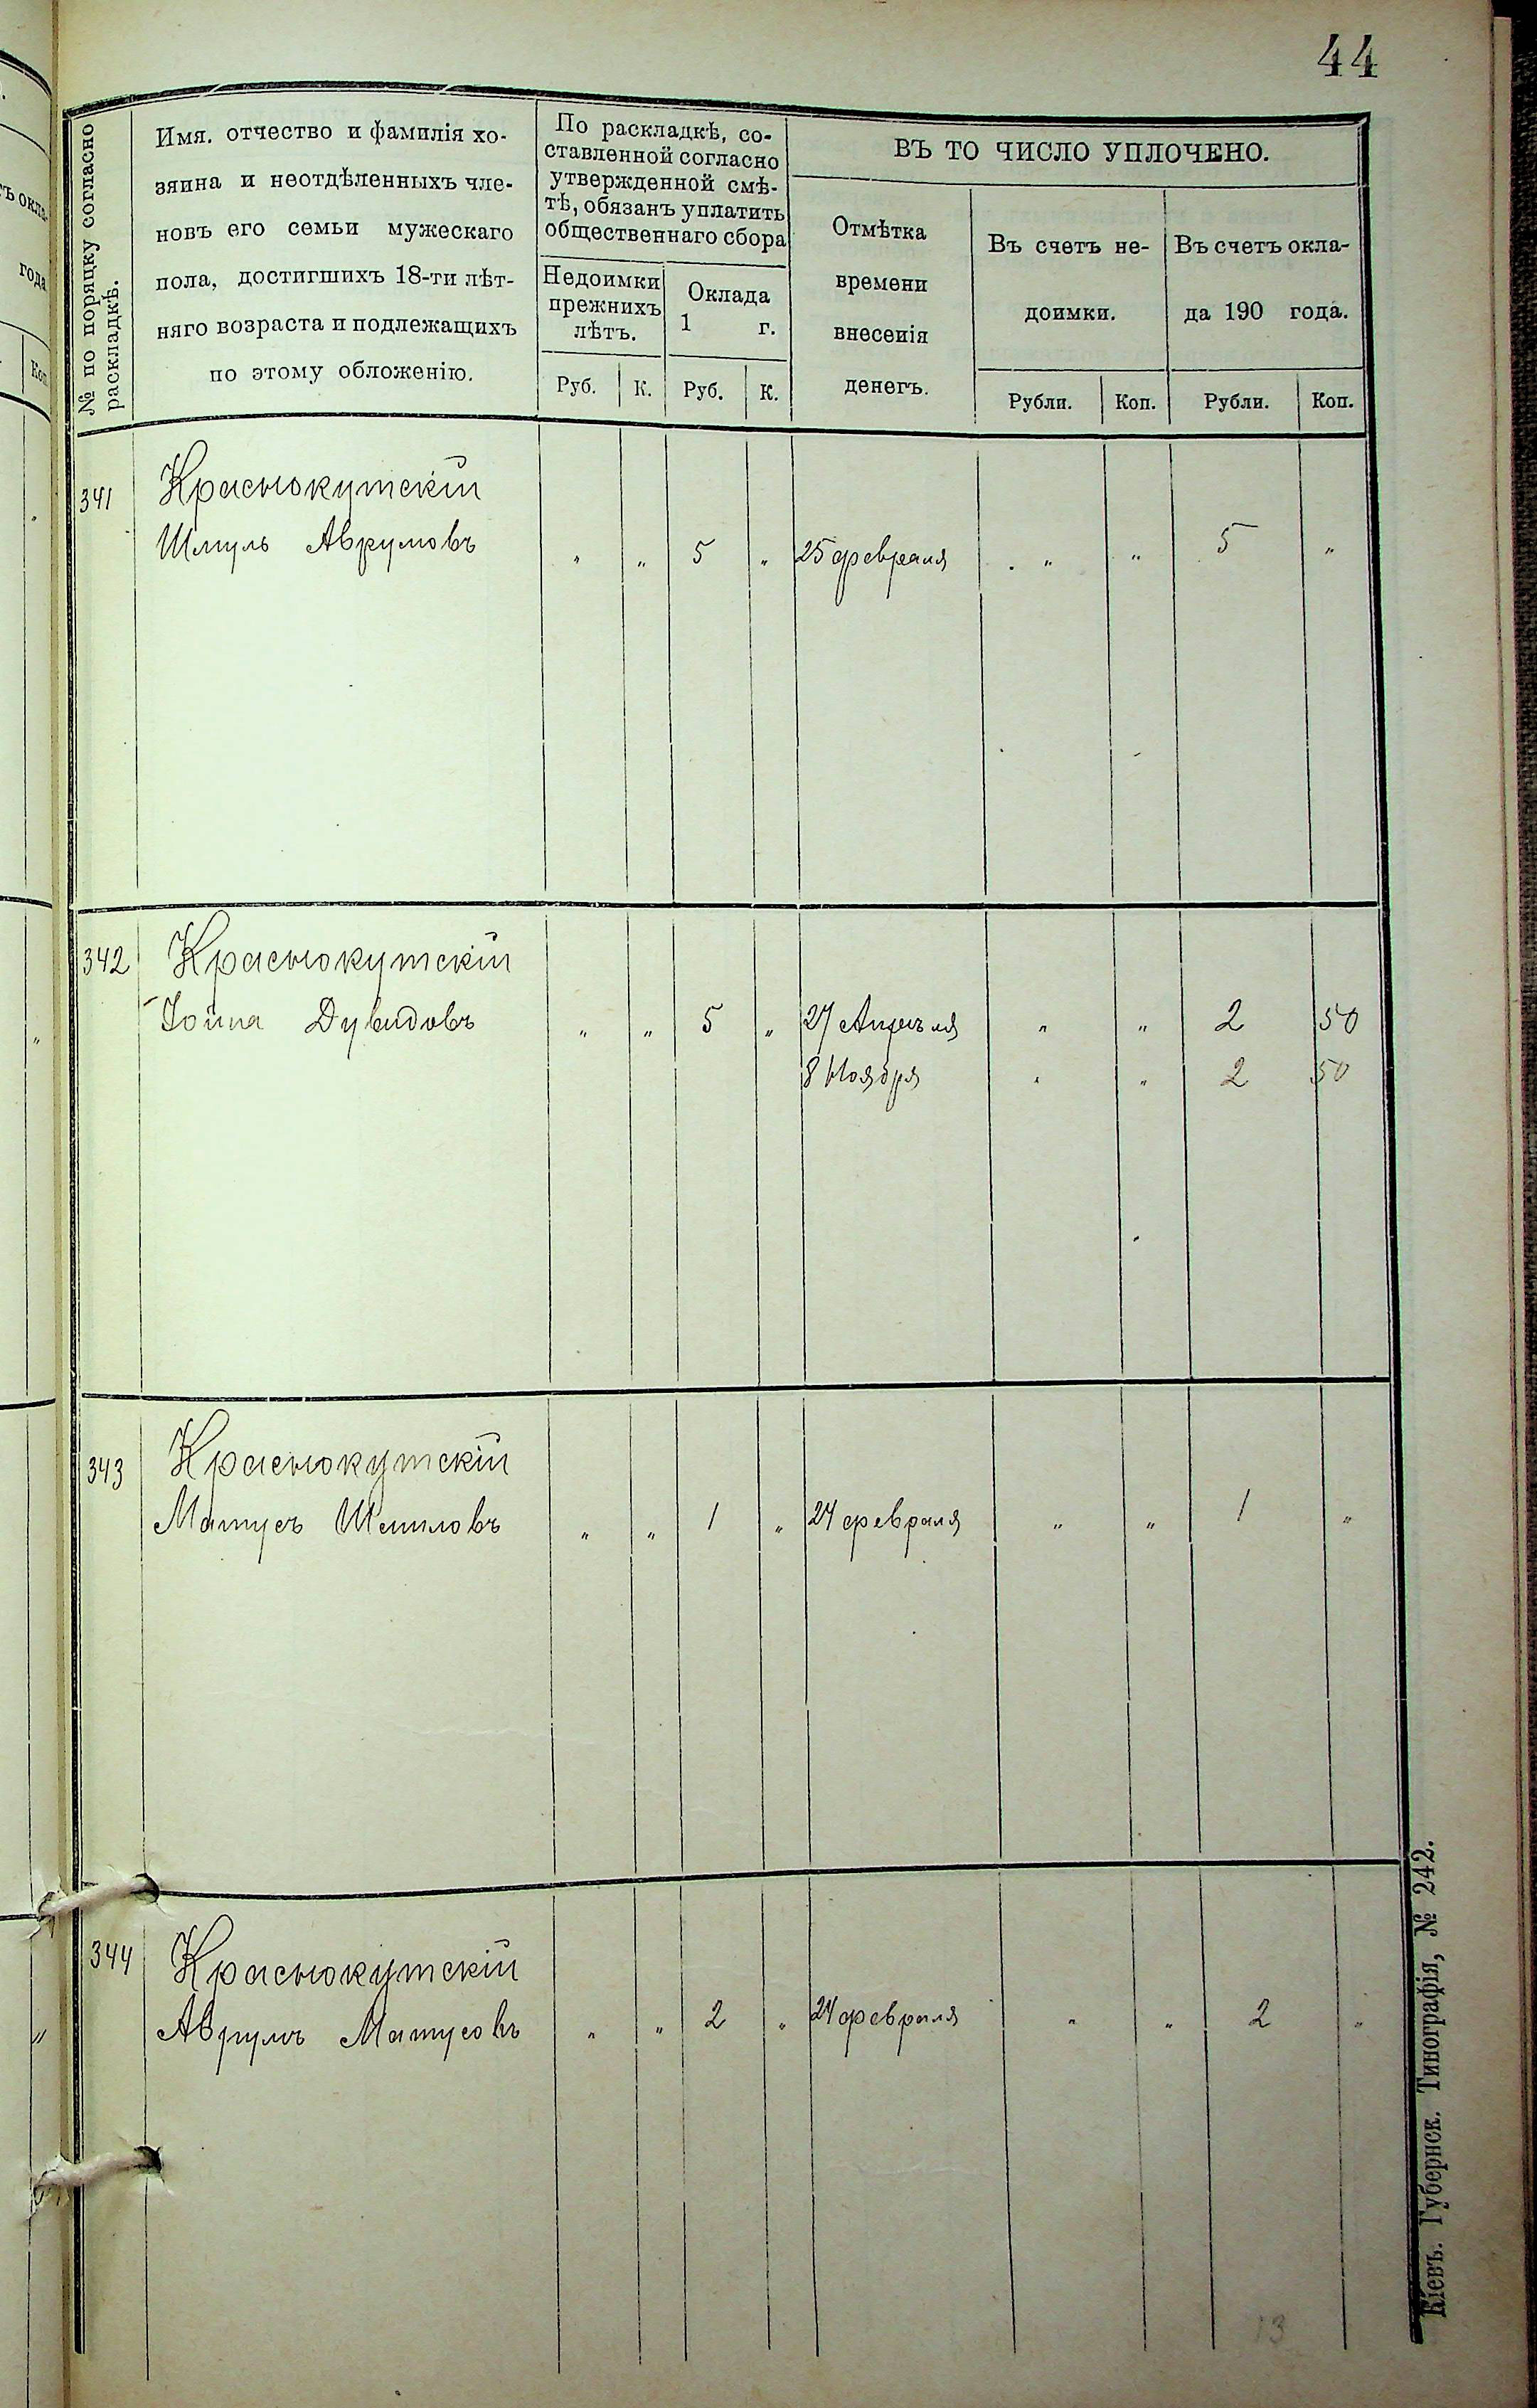 44
№ по порядку согласно
раскладкѣ.
Имя. отчество и фамилія хо-
зяина и неотдѣленныхъ чле-
новъ его семьи мужескаго
пола, достигшихъ 18-ти лѣт-
няго возраста и подлежащихъ
по этому обложенію.
По раскладкѣ, со-
ставленной согласно
утвержденной смѣ-
тѣ, обязанъ уплатить
общественнаго сбора
Недоимки
прежнихъ
лѣтъ.
Оклада
1 г.
ВЪ ТО ЧИСЛО УПЛОЧЕНО.
Отмѣтка
времени
внесенія
денегъ.
Въ счетъ не-
доимки.
Въ счетъ окла-
да 190 года.
Руб. К. Руб. К. Рубли. Коп. Рубли. Коп.
341 Краснокутскій
Шмуль Аврумовъ „ „ 5 „ 25 февраля „ „ 5 „
342 Краснокутскій
Іойна Дувидовъ „ „ 5 „ 27 Апрѣля „ „ 2 50
8 Ноября „ „ 2 50
343 Краснокутскій
Матусъ Шмиловъ „ „ 1 „ 24 февраля „ „ 1 „
344 Краснокутскій
Аврумъ Матусовъ „ „ 2 „ 24 февраля „ „ 2 „
13
Кіевъ. Губернск. Типографія, № 242.